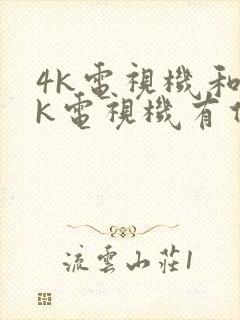 4K電視機和
K電視機有
流雲山莊1